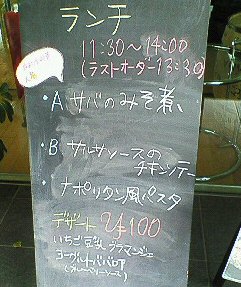 ランチ
11:30～14:00
(ラストオーダー13:30)
・A サバのみそ煮
・B サルサソースの
チキンソテー
・ナポリタン風パスタ
デザート ¥100
いちご豆乳ブラマンジェ
ヨーグルトババロア
(ブルーベリーソース)